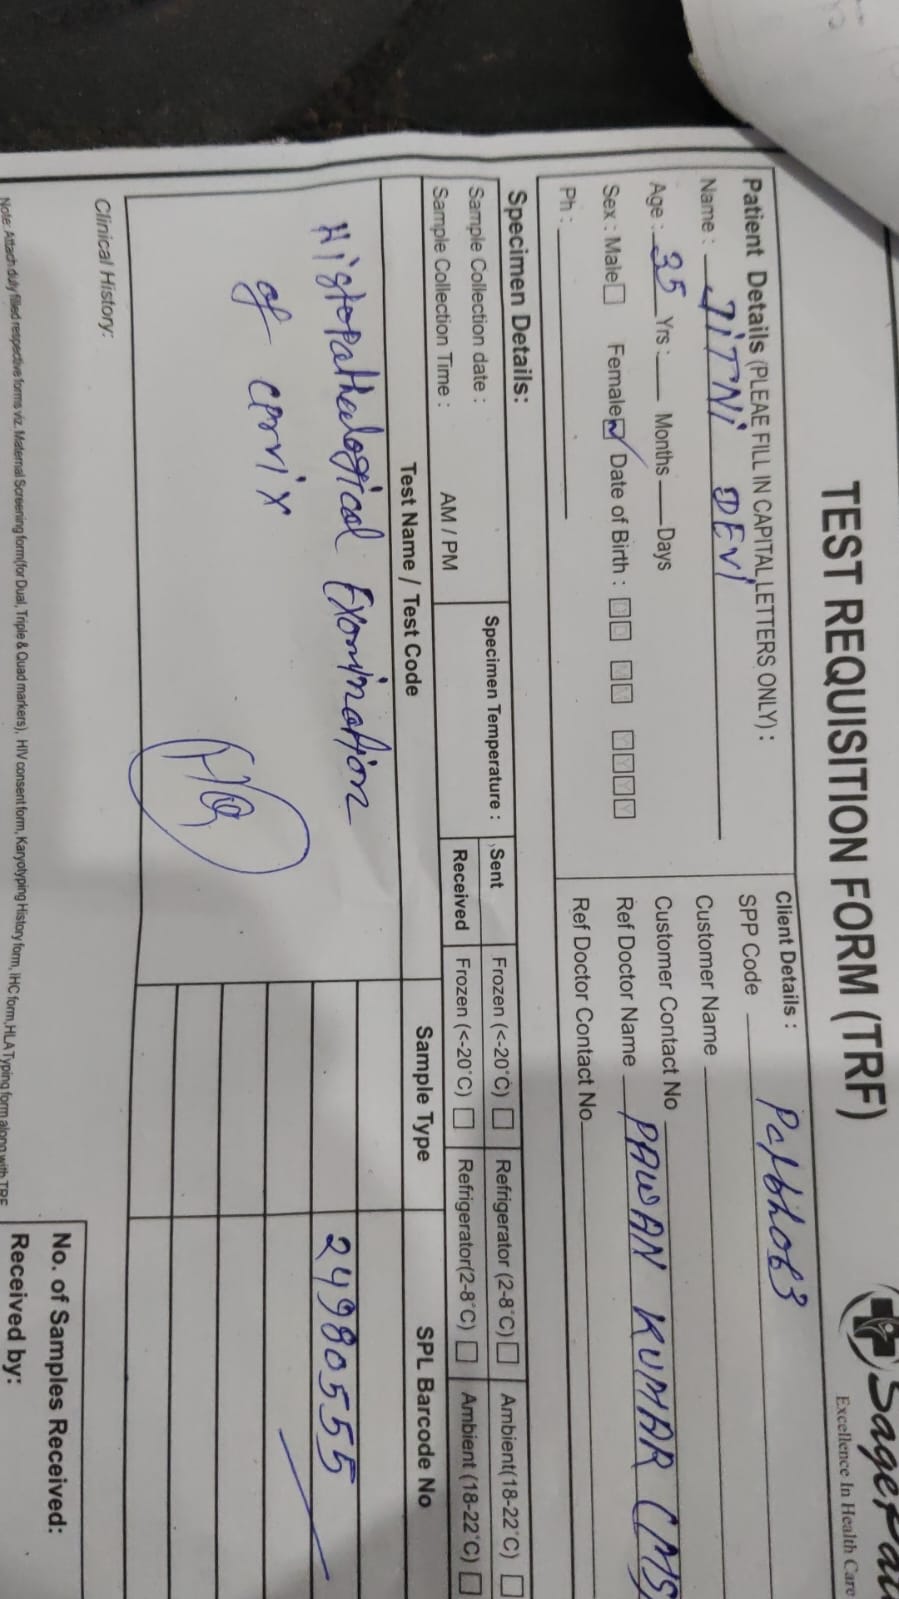 TEST REQUISITION FORM (TRF)
Excellence In Health Care
Patient Details (PLEAE FILL IN CAPITAL LETTERS ONLY) :
Name : JITNI DEVI
Age : 35 Yrs : Months Days
Sex : Male Female Date of Birth : DD MM YYYY
Ph :
Client Details :
SPP Code
Customer Name
Customer Contact No
Ref Doctor Name PAWAN KUMAR (MS
Ref Doctor Contact No.
Specimen Details:
Sample Collection date :
Sample Collection Time : AM / PM
Specimen Temperature :
Sent Frozen (<-20°C) Refrigerator (2-8°C) Ambient(18-22°C)
Received Frozen (<-20°C) Refrigerator(2-8°C) Ambient (18-22°C)
Test Name / Test Code Sample Type SPL Barcode No
Histopathological Exomination 24980555
of cervix
Clinical History:
Note: Attach duly filled respective forms viz. Maternal Screening form(for Dual, Triple & Quad markers), HIV consent form, Karyotyping History form, IHC form,HLA Typing form along with TRF
No. of Samples Received:
Received by: